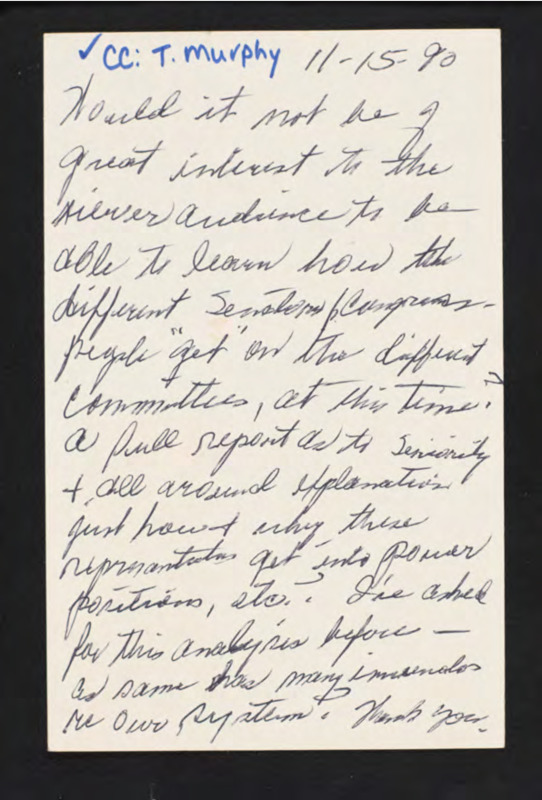 ✓ CC: T. Murphy 11-15-90
Would it not be of
great interest to the
viewer audience to be
able to learn how the
different Senators/Congress-
people "get" on the different
committees, at this time?
a full report as to Seniority
+ all around explanation
just how + why these
representatives get into power
positions, etc.? I've asked
for this analysis before —
as same has many innuendos
re our system? Thank you.